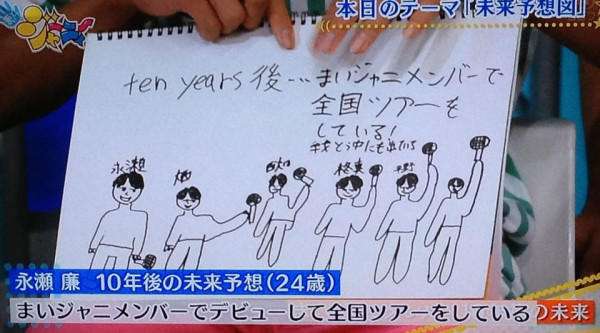 本日のテーマ「未来予想図」
ten years 後…まいジャニメンバーで
全国ツアーを
している!
永瀬
平野
永瀬 廉 10年後の未来予想(24歳)
まいジャニメンバーでデビューして全国ツアーをしている
の未来